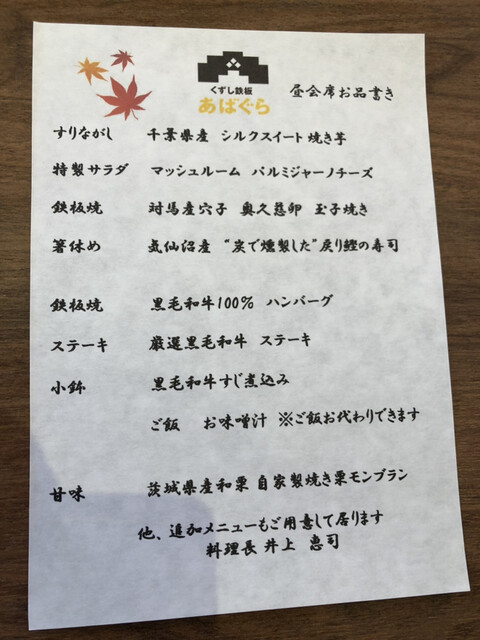 くずし鉄板
あばぐら
昼会席お品書き
すりながし 千葉県産 シルクスイート焼き芋
特製サラダ マッシュルーム パルミジャーノチーズ
鉄板焼 対馬産穴子 奥久慈卵 玉子焼き
箸休め 気仙沼産 “炭で燻製した”戻り鰹の寿司
鉄板焼 黒毛和牛100% ハンバーグ
ステーキ 厳選黒毛和牛 ステーキ
小鉢 黒毛和牛すじ煮込み
ご飯 お味噌汁 ※ご飯お代わりできます
甘味 茨城県産和栗 自家製焼き栗モンブラン
他、追加メニューもご用意して居ります
料理長 井上 恵司